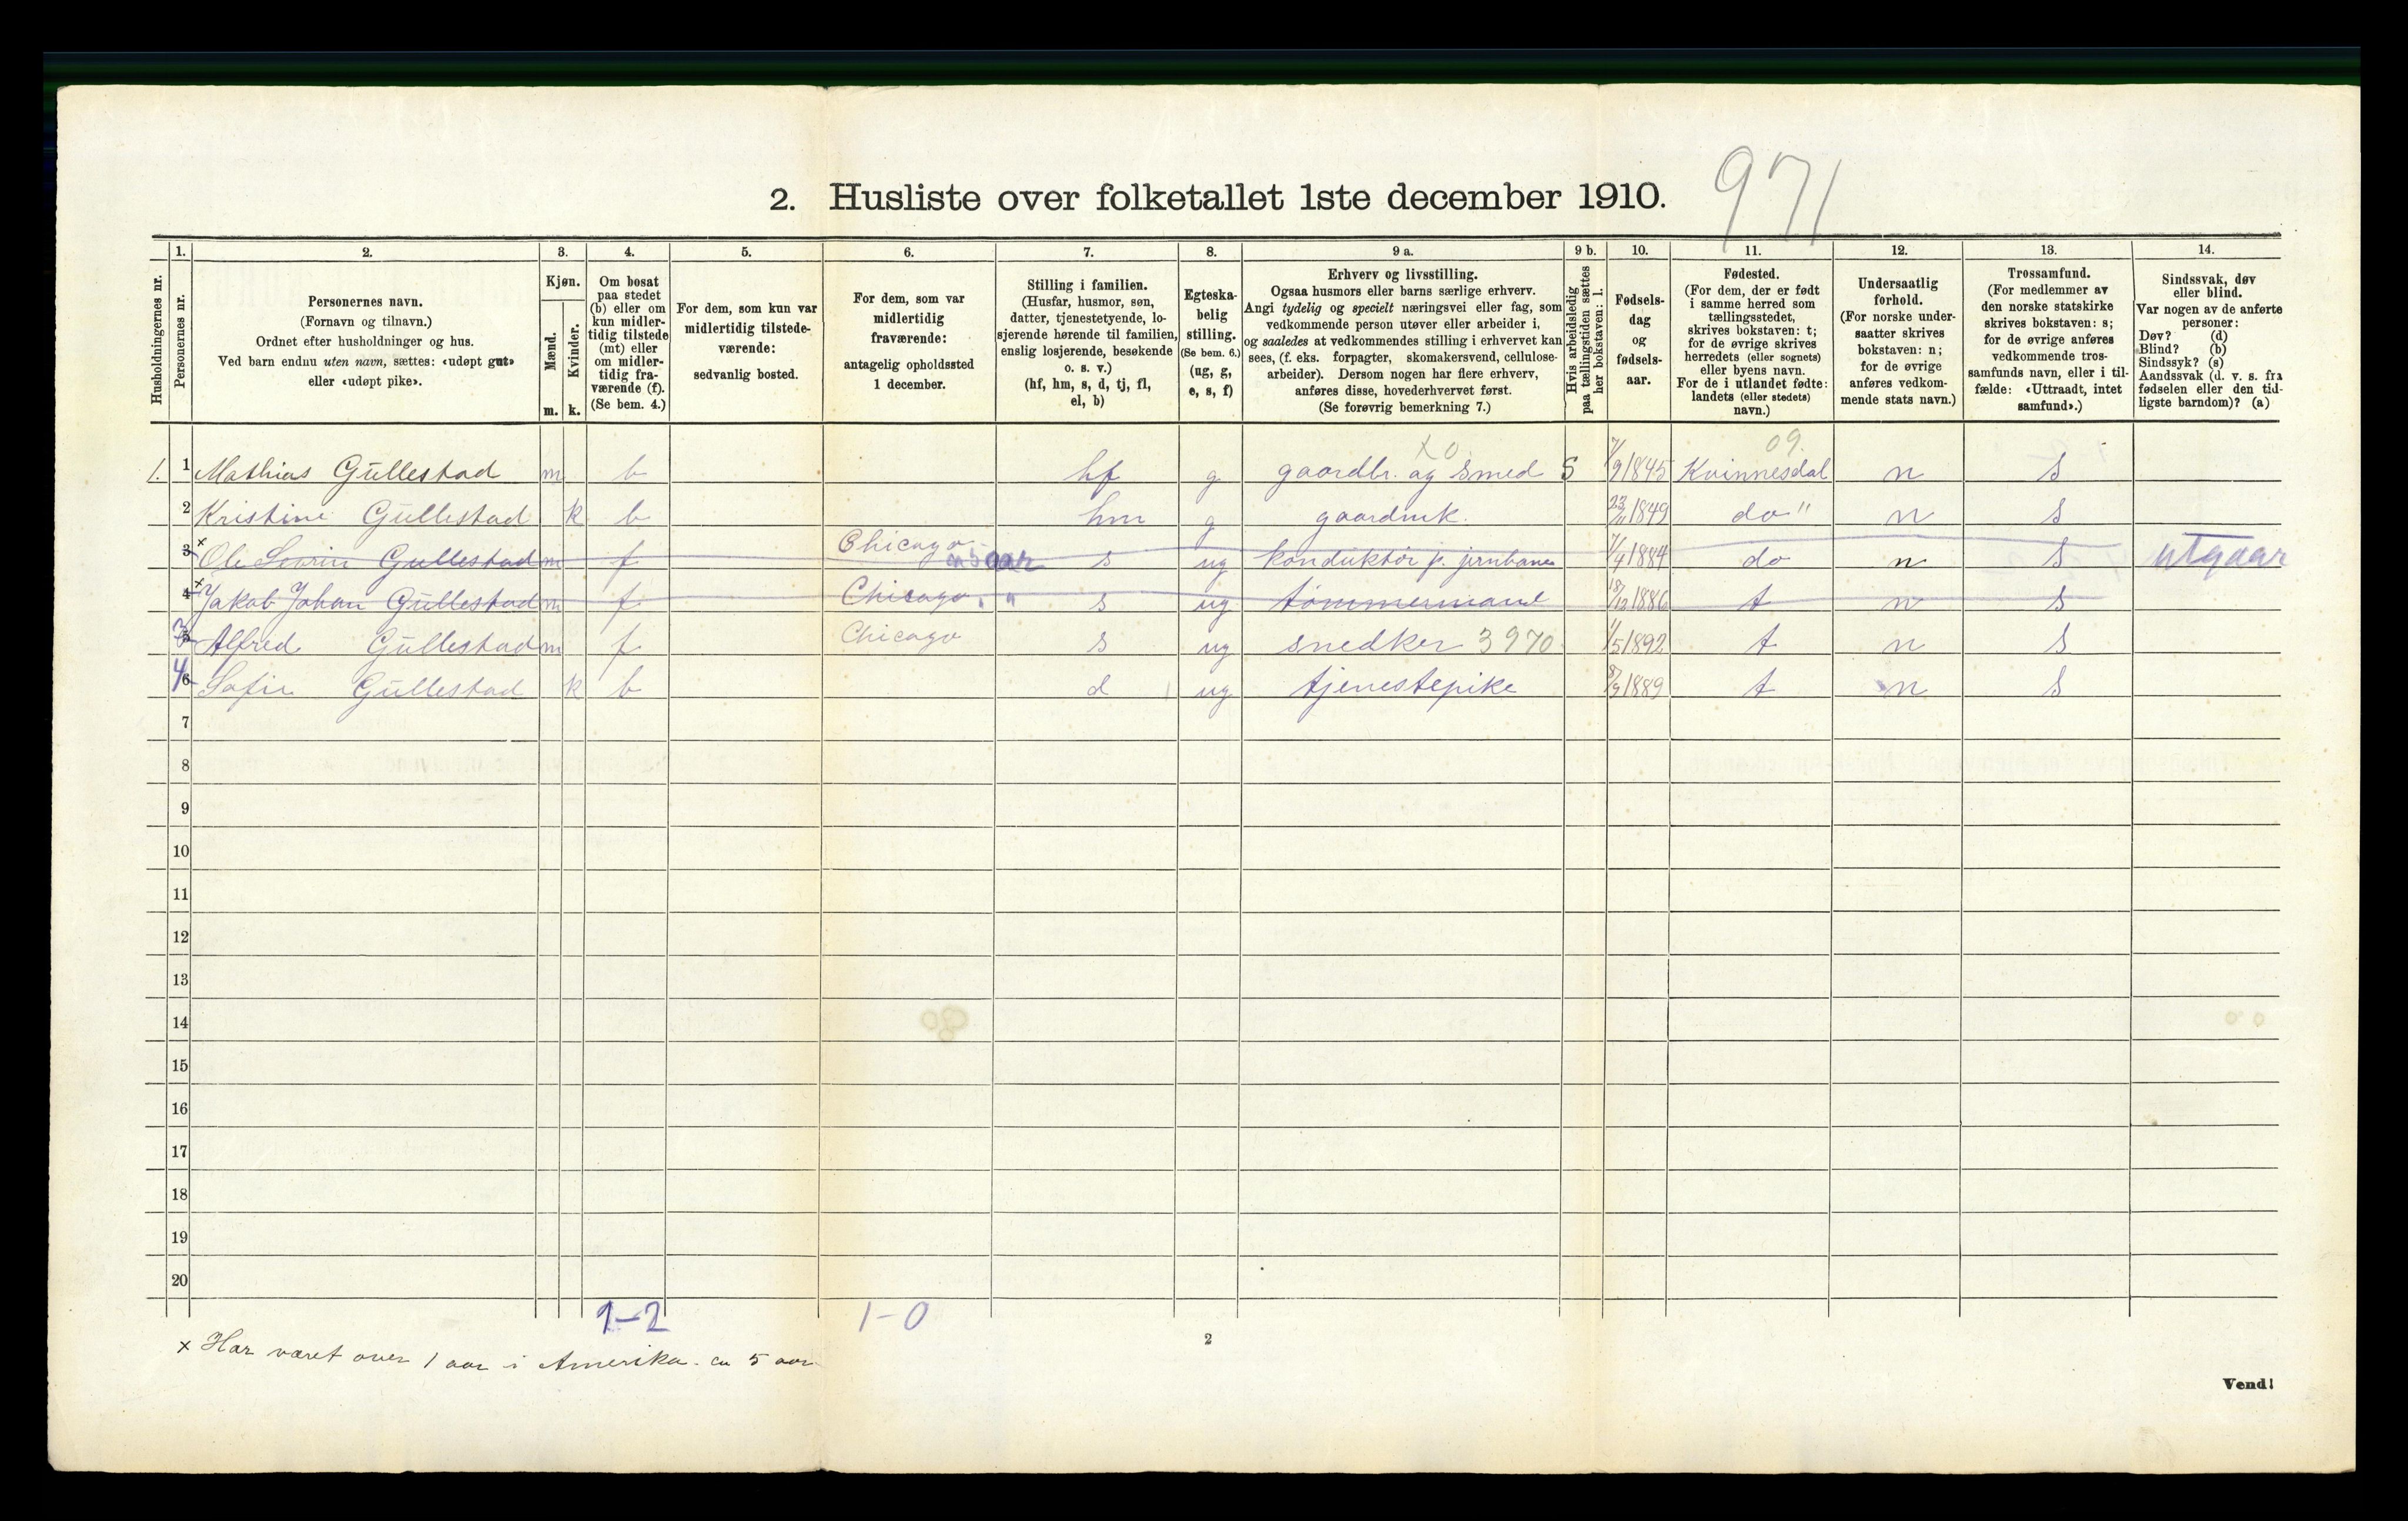 971
2. Husliste over folketallet 1ste december 1910.
Husholdningernes nr.
1.
Personernes nr.
2.
Personernes navn.
(Fornavn og tilnavn.)
Ordnet efter husholdninger og hus.
Ved barn endnu uten navn, sættes: «udøpt gut»
eller «udøpt pike».
3.
Kjøn.
Mænd.
Kvinder.
m. k.
4.
Om bosat
paa stedet
(b) eller om
kun midler-
tidig tilstede
(mt) eller
om midler-
tidig fra-
værende (f).
(Se bem. 4.)
5.
For dem, som kun var
midlertidig tilstede-
værende:
sedvanlig bosted.
6.
For dem, som var
midlertidig
fraværende:
antagelig opholdssted
1 december.
7.
Stilling i familien.
(Husfar, husmor, søn,
datter, tjenestetyende, lo-
sjerende hørende til familien,
enslig losjerende, besøkende
o. s. v.)
(hf, hm, s, d, tj, fl,
el, b)
8.
Egteska-
belig
stilling.
(Se bem. 6.)
(ug, g,
e, s, f)
9 a.
Erhverv og livsstilling.
Ogsaa husmors eller barns særlige erhverv.
Angi tydelig og specielt næringsvei eller fag, som
vedkommende person utøver eller arbeider i,
og saaledes at vedkommendes stilling i erhvervet kan
sees, (f. eks. forpagter, skomakersvend, cellulose-
arbeider). Dersom nogen har flere erhverv,
anføres disse, hovederhvervet først.
(Se forøvrig bemerkning 7.)
9 b.
Hvis arbeidsledig
paa tællingstiden sættes
her bokstaven: l.
10.
Fødsels-
dag
og
fødsels-
aar.
11.
Fødested.
(For dem, der er født
i samme herred som
tællingsstedet,
skrives bokstaven: t;
for de øvrige skrives
herredets (eller sognets)
eller byens navn.
For de i utlandet fødte:
landets (eller stedets)
navn.)
12.
Undersaatlig
forhold.
(For norske under-
saatter skrives
bokstaven: n;
for de øvrige
anføres vedkom-
mende stats navn.)
13.
Trossamfund.
(For medlemmer av
den norske statskirke
skrives bokstaven: s;
for de øvrige anføres
vedkommende tros-
samfunds navn, eller i til-
fælde: «Uttraadt, intet
samfund».)
14.
Sindssvak, døv
eller blind.
Var nogen av de anførte
personer:
Døv? (d)
Blind? (b)
Sindssyk? (s)
Aandssvak (d. v. s. fra
fødselen eller den tid-
ligste barndom)? (a)
X0 09.
1. 1 Mathias Gullestad m b hf g gaardbr. og Smed S 7/9 1845 Kvinnesdal n s
2 Kristine Gullestad k b hm g gaardmk. 23/11 1849 do " n s
3 x Ole Severin Gullestad m f Chicago ca 5 aar s ug konduktör p. jernbane 7/4 1884 do n s utgaar
4 x Jakob Johan Gullestad m f Chicago " " s ug tömmermand 18/12 1886 t n s
5 3 Alfred Gullestad m f Chicago s ug snedker 3970 1/5 1892 t n s
6 4 Sofie Gullestad k b d ug tjenestepike 1889 t n s
7
8
9
10
11
12
13
14
15
16
17
18
19
20
1-2 1-0
x Har været over 1 aar i Amerika. ca 5 aar
2
Vend!